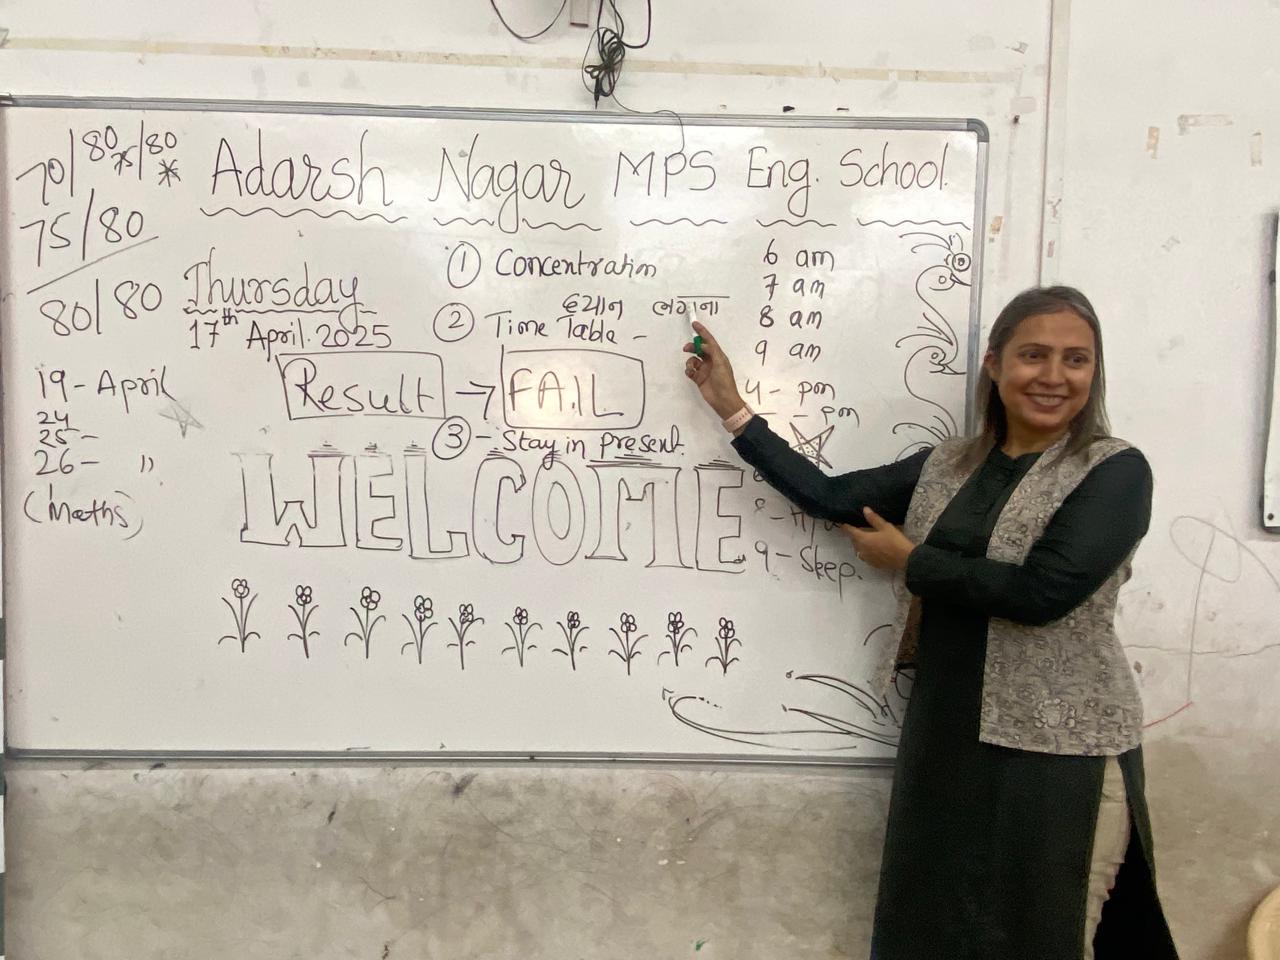 Adarsh Nagar MPS Eng. School.
70/80*/80*
75/80
80/80
Thursday
17th April. 2025
19 - April
24
25 -
26 - "
(Maths)
① Concentration
ध्यान लगाना
② Time Table -
Result → FAIL
③ - Stay in present.
WELCOME
6 am
7 am
8 am
9 am
4 - pm
- pm
9 - Sleep.